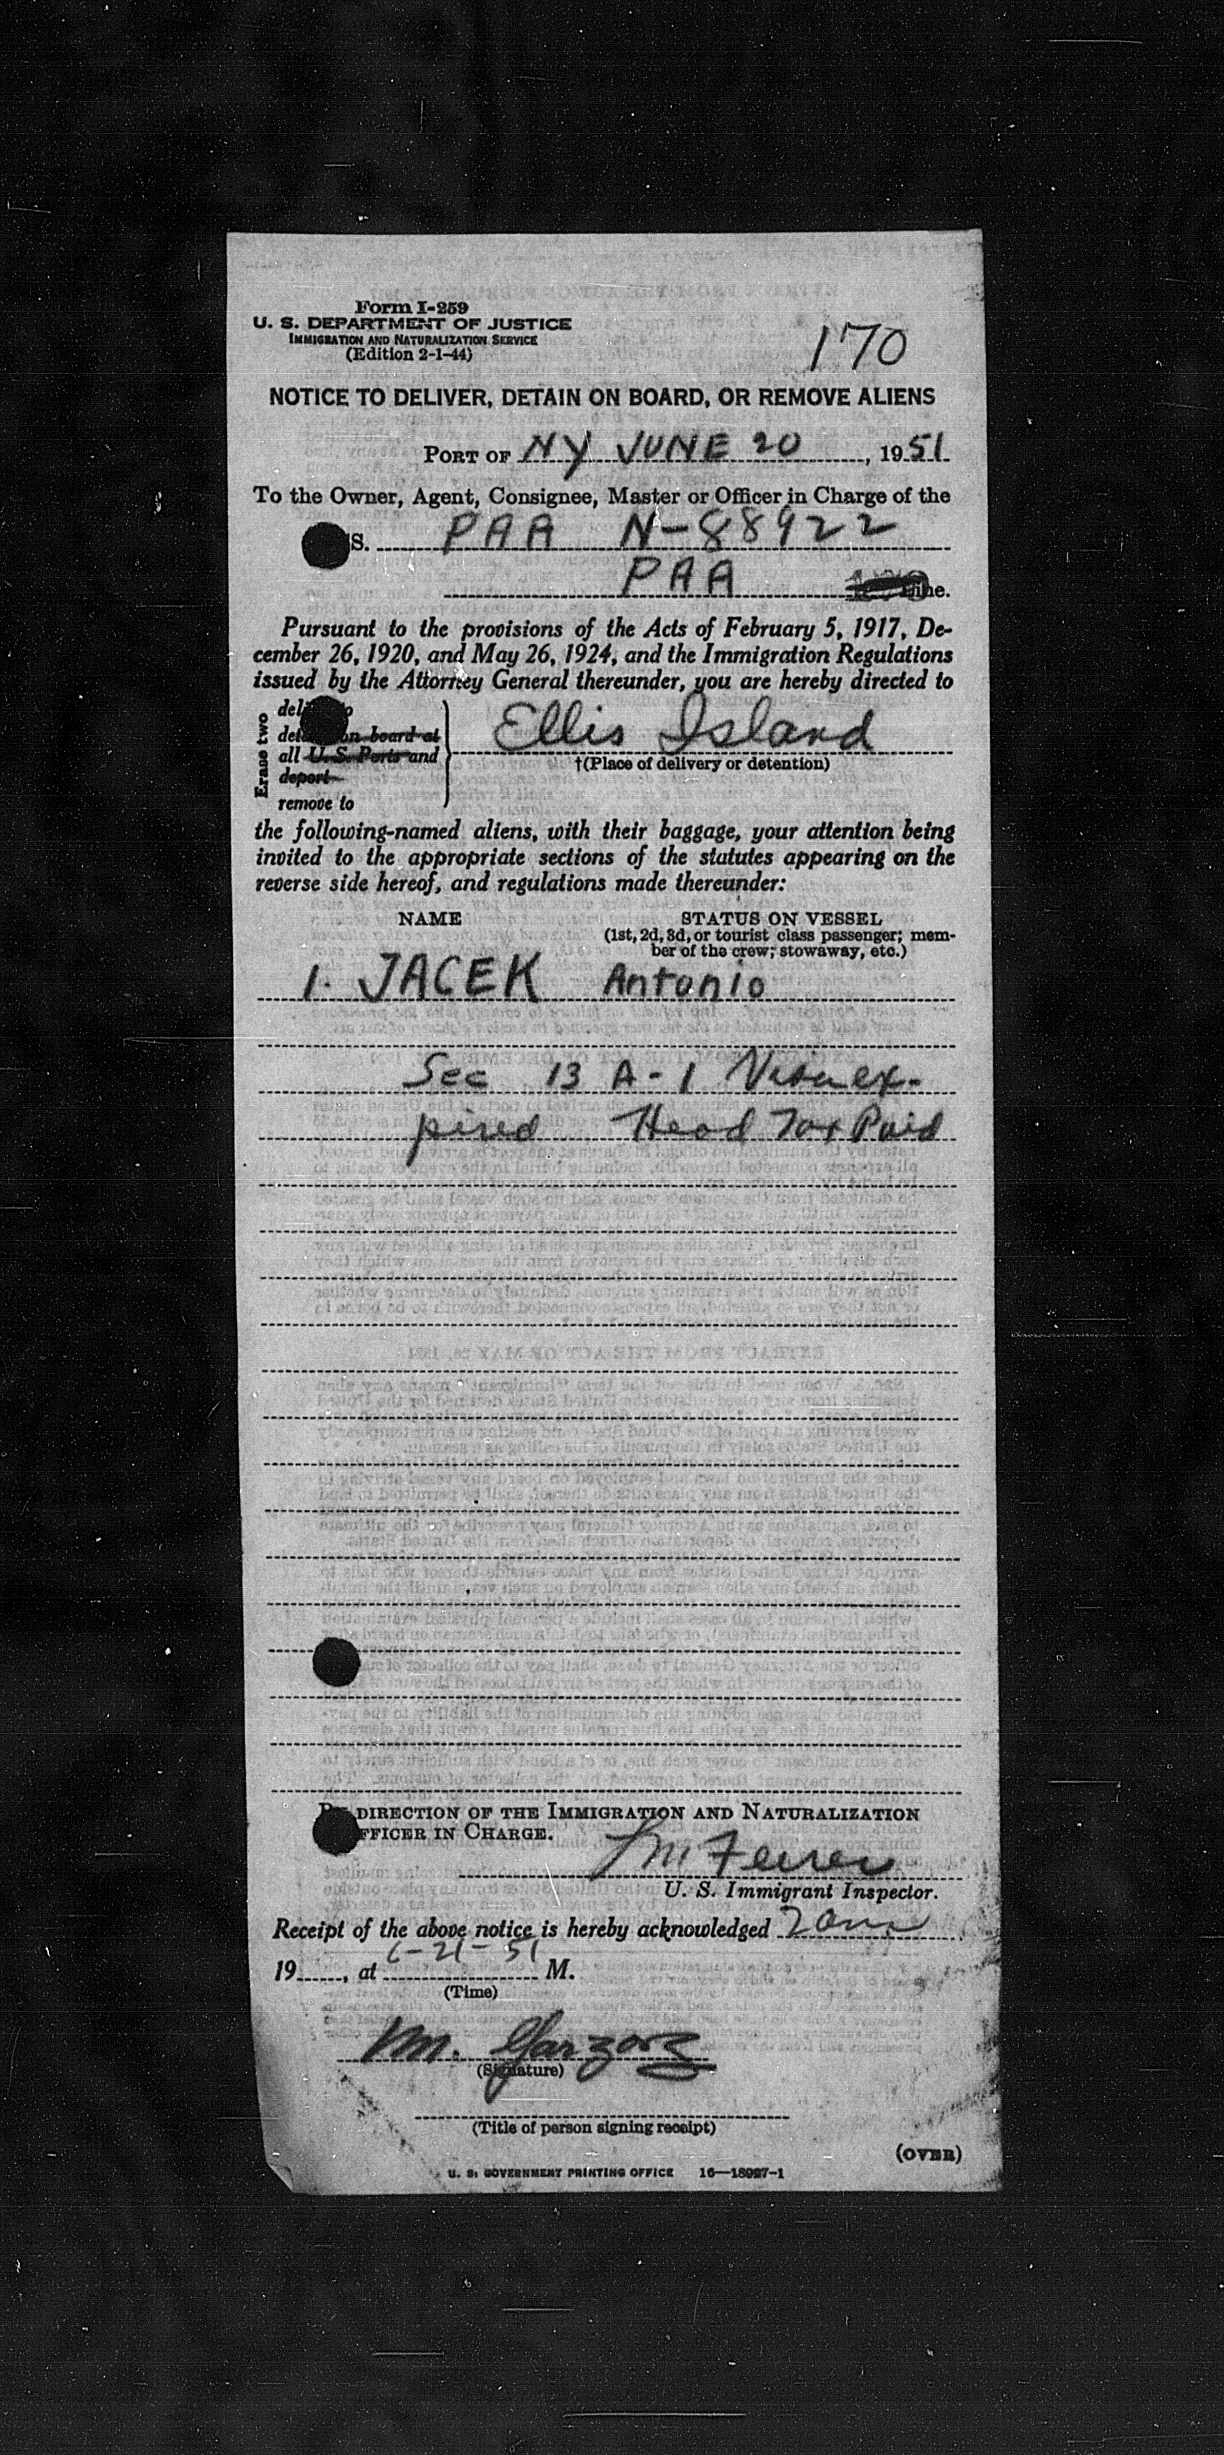 Form I-259
U. S. DEPARTMENT OF JUSTICE
IMMIGRATION AND NATURALIZATION SERVICE
(Edition 2-1-44)
170
NOTICE TO DELIVER, DETAIN ON BOARD, OR REMOVE ALIENS
PORT OF NY JUNE 20, 1951
To the Owner, Agent, Consignee, Master or Officer in Charge of the
S. PAA N-88922
PAA
Pursuant to the provisions of the Acts of February 5, 1917, De-
cember 26, 1920, and May 26, 1924, and the Immigration Regulations
issued by the Attorney General thereunder, you are hereby directed to
Erase two
on board at
all U. S. Ports and
deport
remove to
Ellis Island
†(Place of delivery or detention)
the following-named aliens, with their baggage, your attention being
invited to the appropriate sections of the statutes appearing on the
reverse side hereof, and regulations made thereunder:
NAME STATUS ON VESSEL
(1st, 2d, 3d, or tourist class passenger; mem-
ber of the crew; stowaway, etc.)
1. JACEK Antonio
Sec 13 A-1 Visa ex-
pired Head Tax Paid
DIRECTION OF THE IMMIGRATION AND NATURALIZATION
FFICER IN CHARGE.
U. S. Immigrant Inspector.
Receipt of the above notice is hereby acknowledged
19......, at 6-21-51 M.
(Time)
M. Garzorz
(Signature)
(Title of person signing receipt)
(OVER)
U. S. GOVERNMENT PRINTING OFFICE 16—18927-1